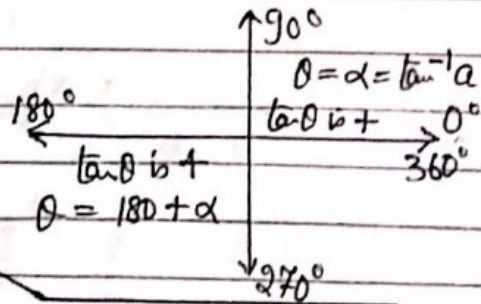 90°
θ = α = tan⁻¹a
180°
tanθ is +
0°
360°
tanθ is +
θ = 180 + α
270°